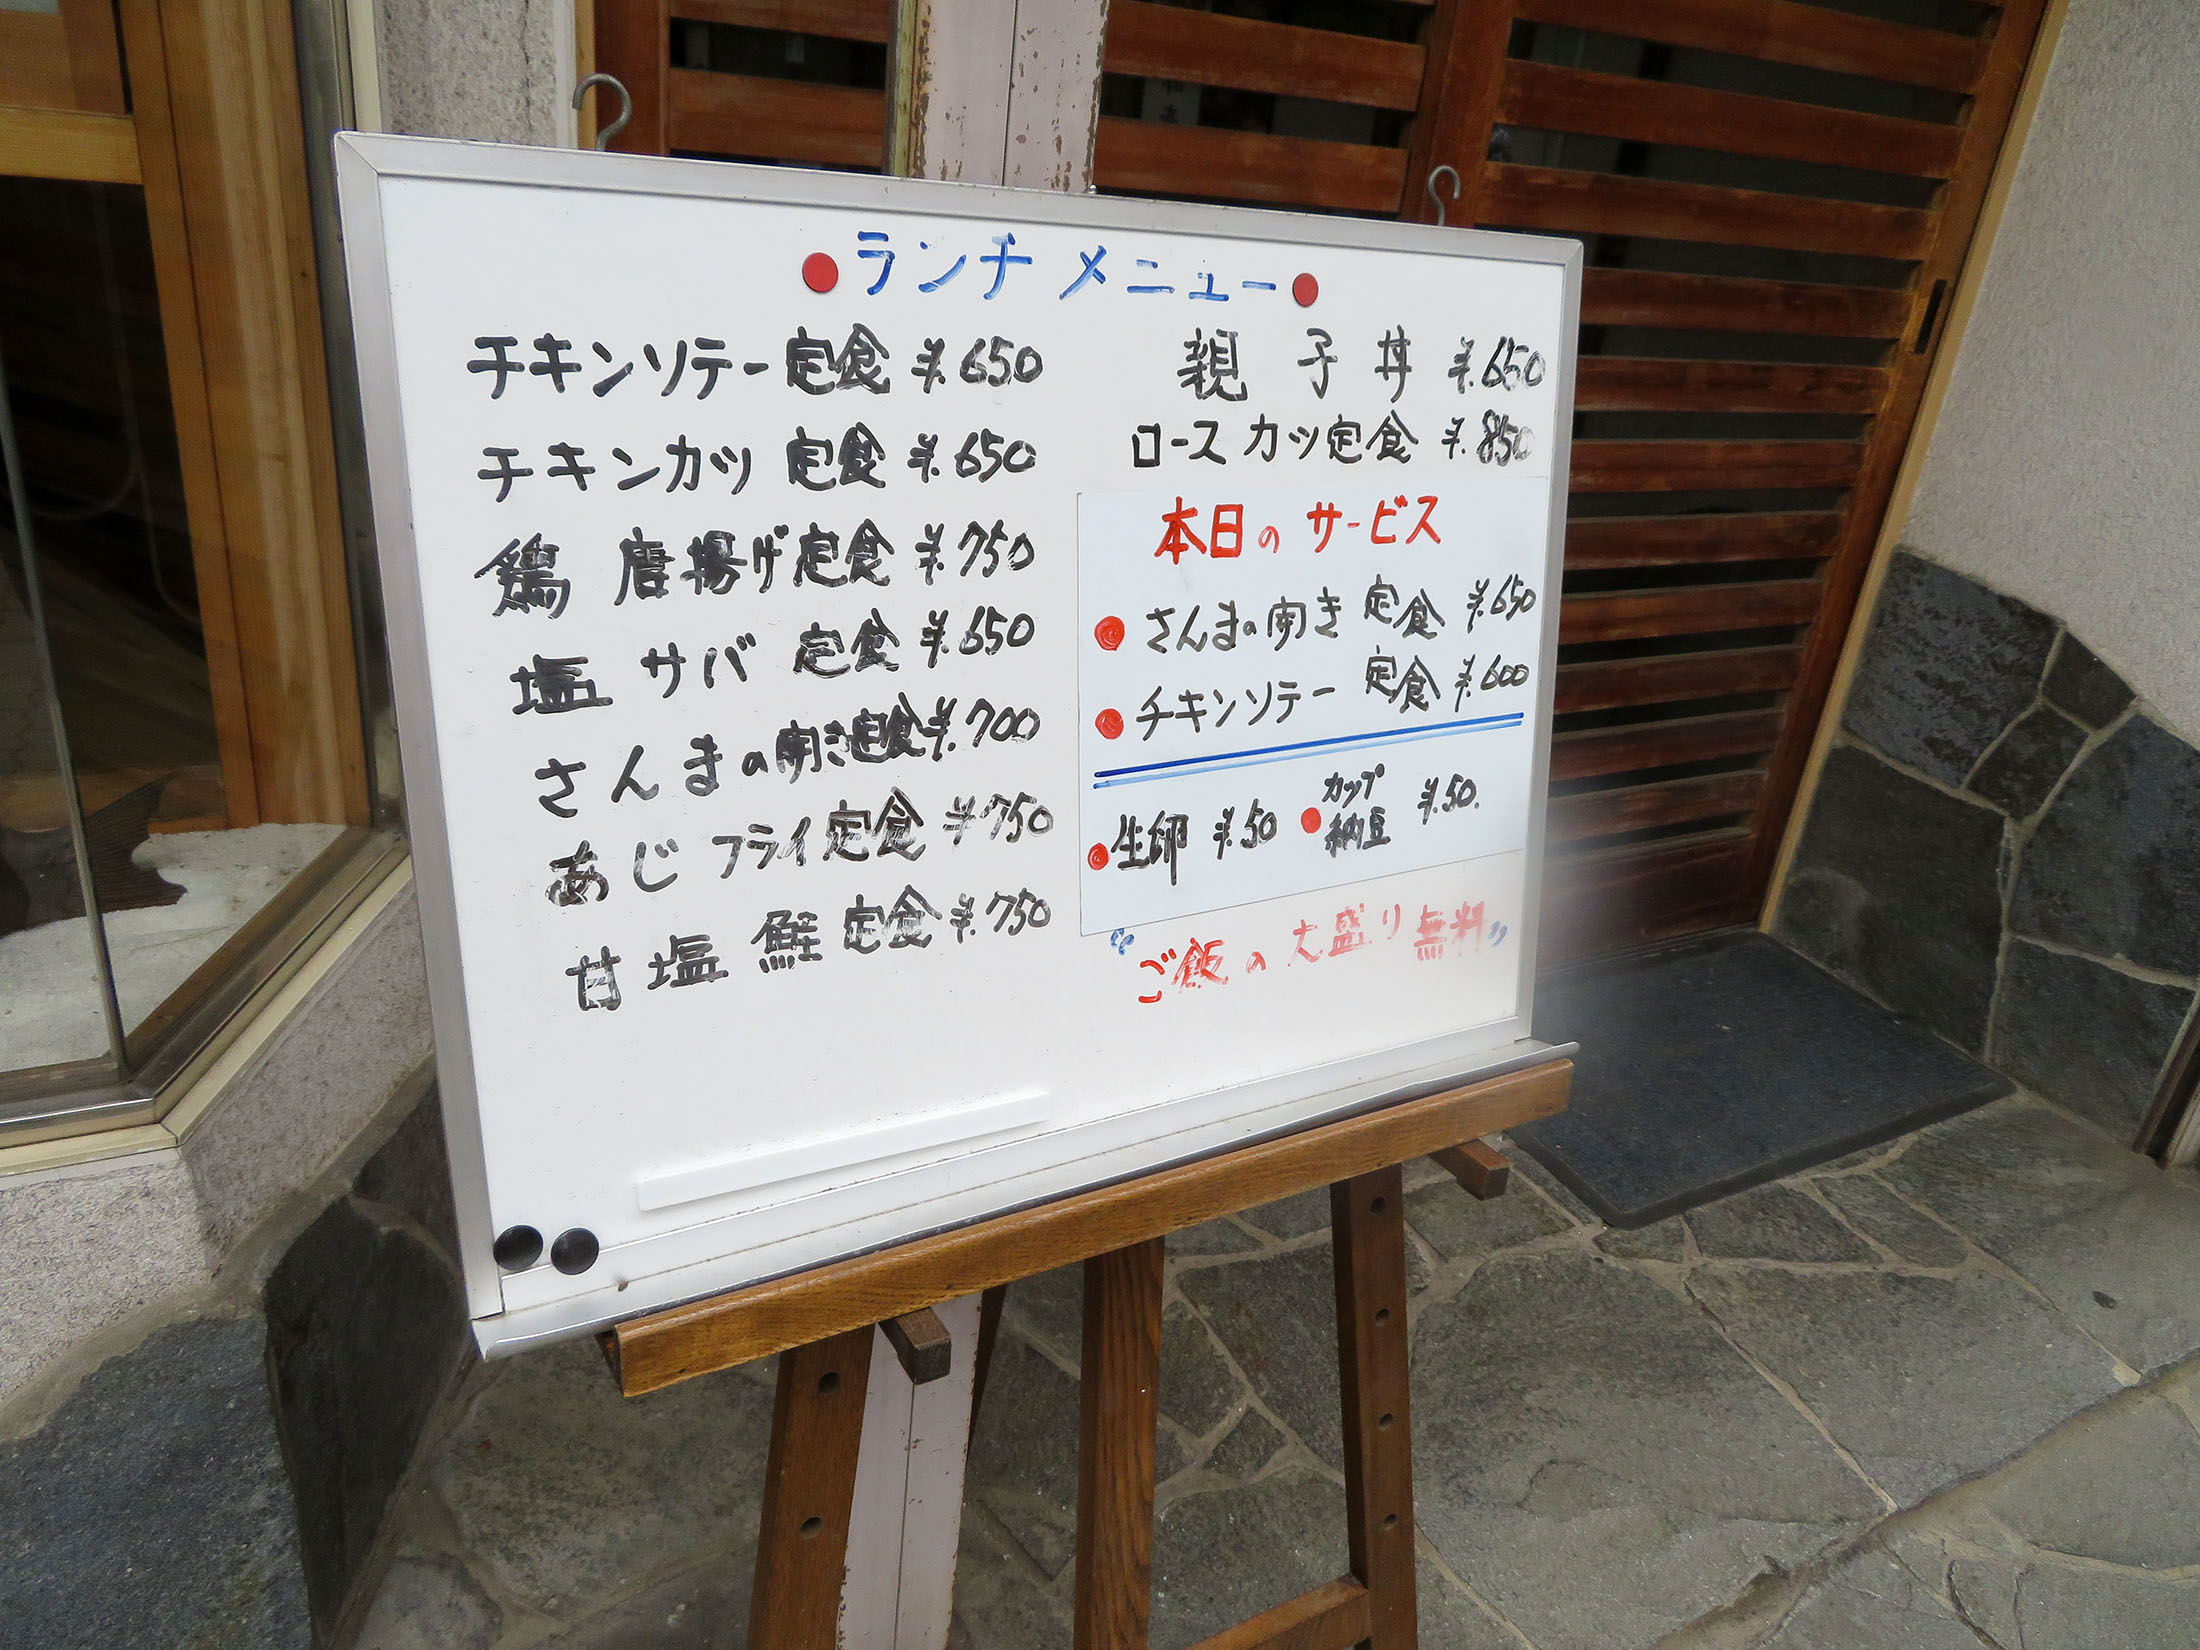 ランチメニュー
チキンソテー定食 ¥.650
チキンカツ 定食 ¥.650
鶏 唐揚げ定食 ¥.750
塩 サバ 定食 ¥.650
さんまの開き定食 ¥.700
あじ フライ定食 ¥750
甘 塩 鮭 定食 ¥.750
親 子 丼 ¥.650
ロース カツ定食 ¥.850
本日の サービス
さんまの開き 定食 ¥.650
チキンソテー 定食 ¥.600
生卵 ¥.50
カップ
納豆 ¥.50.
"ご飯の大盛り無料"